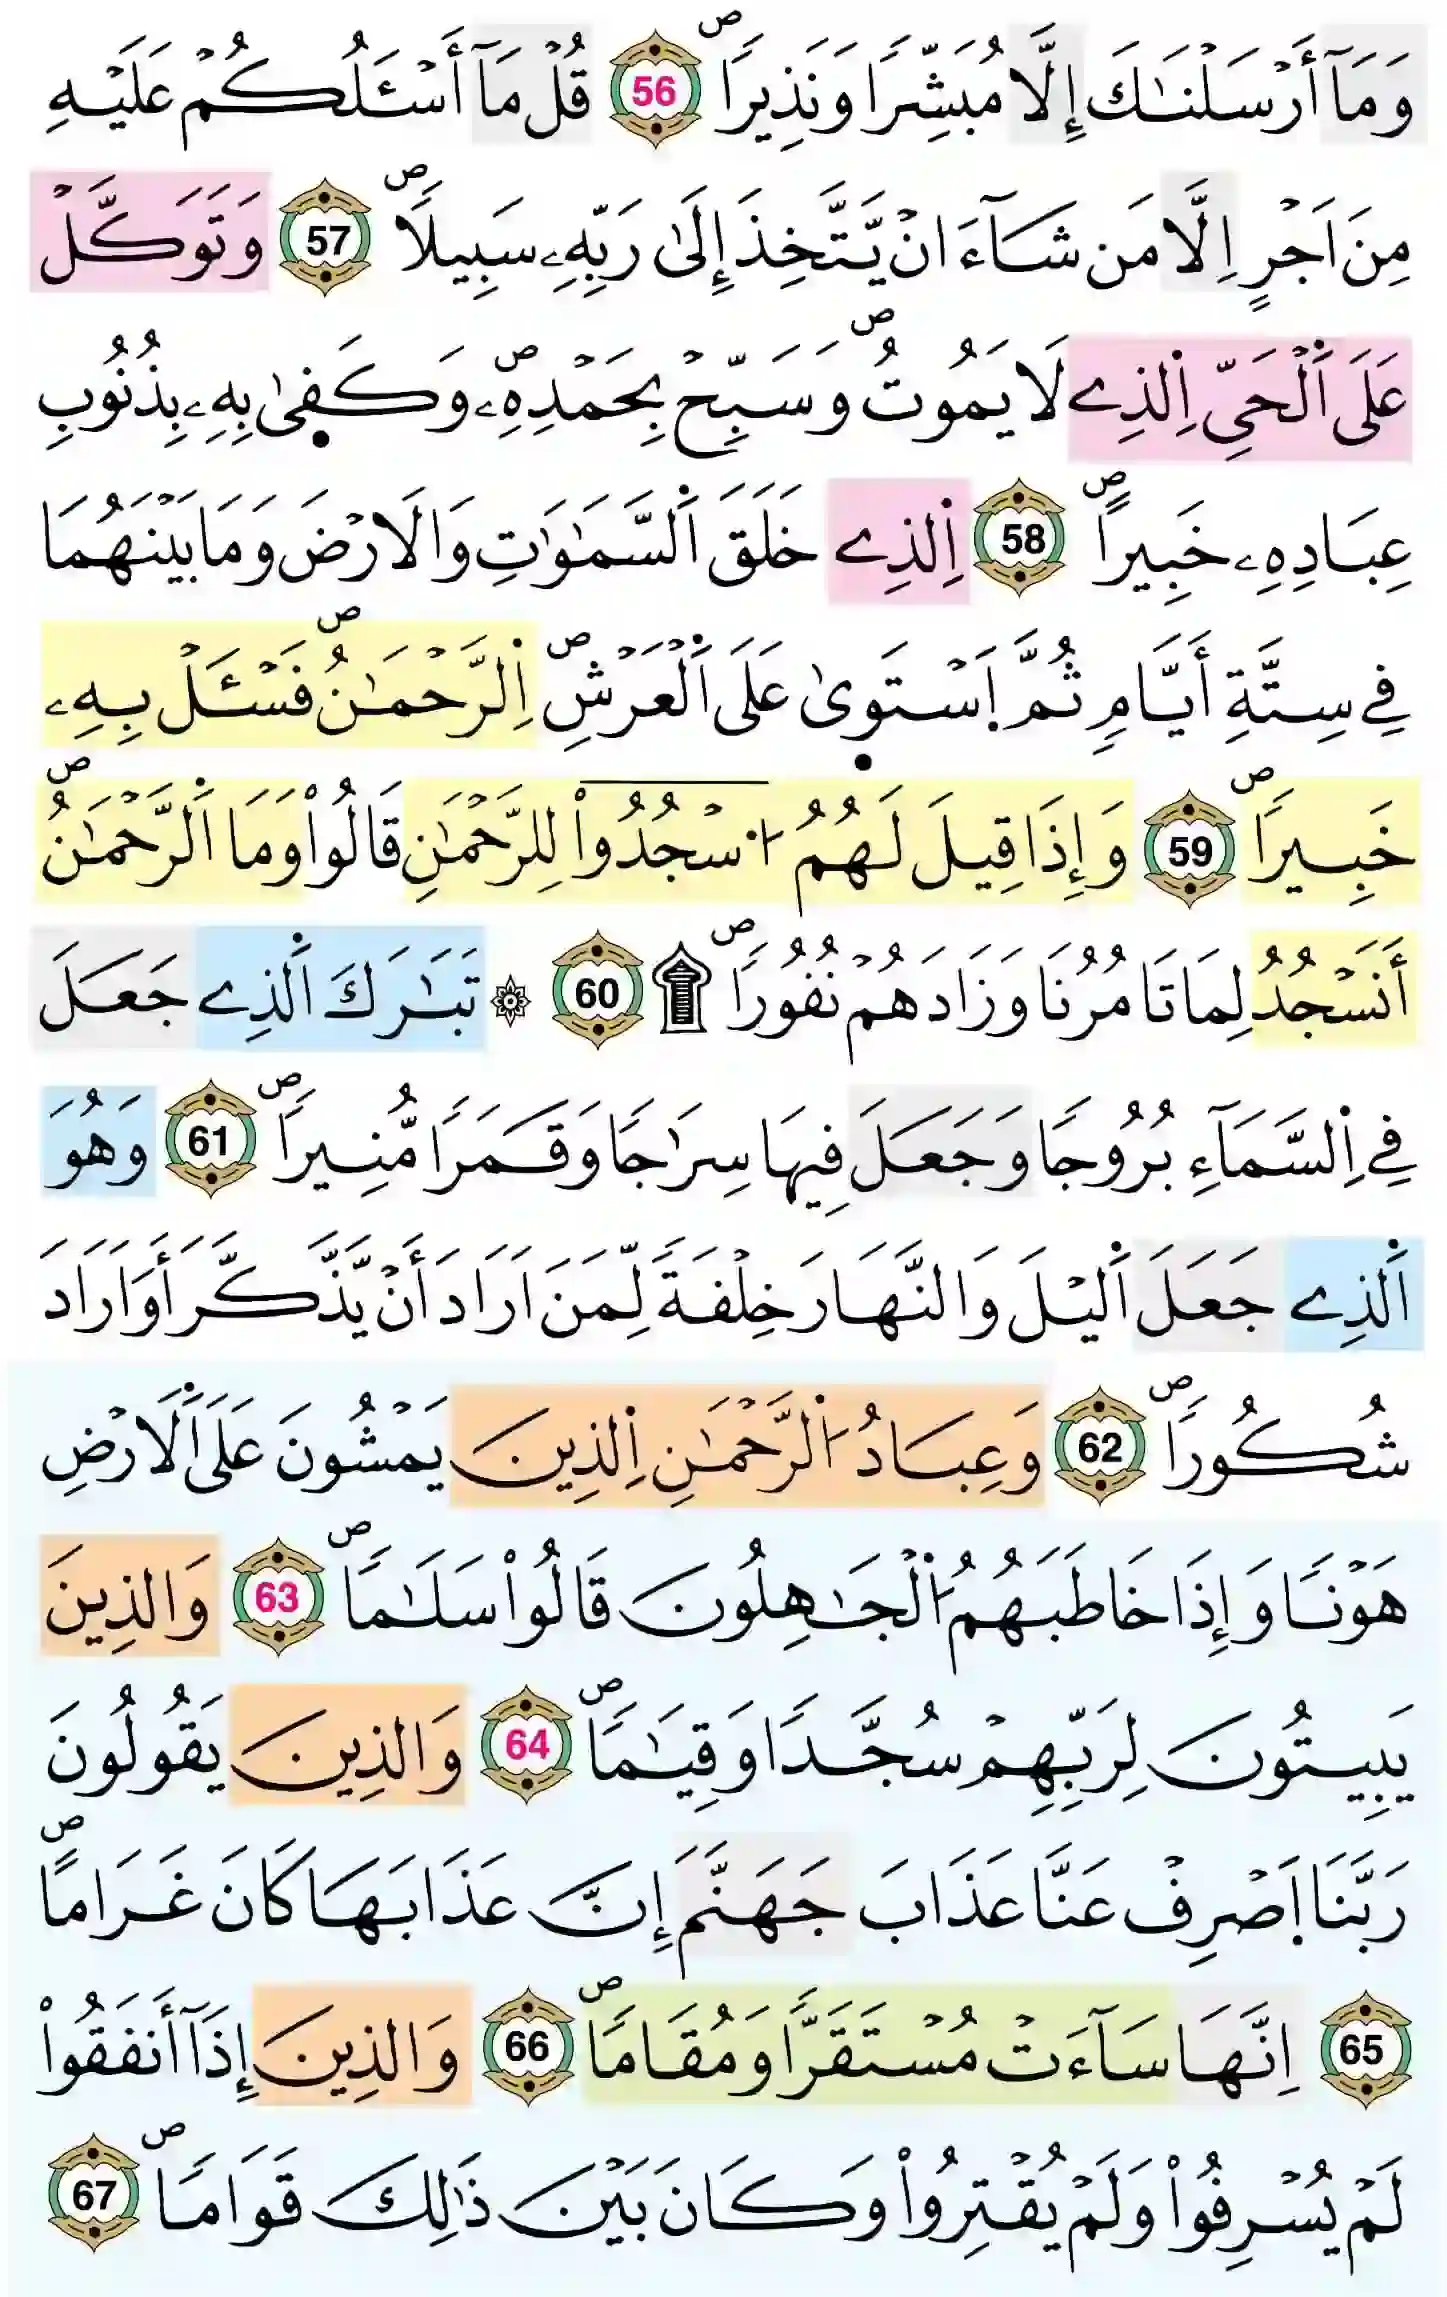 وَمَآ أَرْسَلْنَٰكَ إِلَّا مُبَشِّرًا وَنَذِيرًاۖ 56 قُلْ مَآ أَسْـَٔلُكُمْ عَلَيْهِ
مِنَ اَجْرٍ اِلَّا مَن شَآءَ انْ يَّتَّخِذَ إِلَىٰ رَبِّهِۦ سَبِيلًاۖ 57 وَتَوَكَّلْ
عَلَى اَ۬لْحَيِّ اِ۬لذِے لَا يَمُوتُۖ وَسَبِّحْ بِحَمْدِهِۦۖ وَكَفٜىٰ بِهِۦ بِذُنُوبِ
عِبَادِهِۦ خَبِيرًاۖ 58 اِ۬لذِے خَلَقَ اَ۬لسَّمَٰوَٰتِ وَالَارْضَ وَمَا بَيْنَهُمَا
فِے سِتَّةِ أَيَّامٍ ثُمَّ اَ۪سْتَوٜىٰ عَلَى اَ۬لْعَرْشِۖ اِ۬لرَّحْمَٰنُۖ فَسْـَٔلْ بِهِۦ
خَبِيرًاۖ 59 وَإِذَا قِيلَ لَهُمُ اُ۟سْجُدُواْ لِلرَّحْمَٰنِ قَالُواْ وَمَا اَ۬لرَّحْمَٰنُۖ
أَنَسْجُدُ لِمَا تَامُرُنَا وَزَادَهُمْ نُفُورًاۖ ۩ 60 ۞ تَبَٰرَكَ اَ۬لذِے جَعَلَ
فِے اِ۬لسَّمَآءِ بُرُوجًا وَجَعَلَ فِيهَا سِرَٰجًا وَقَمَرًا مُّنِيرًاۖ 61 وَهُوَ
اَ۬لذِے جَعَلَ اَ۬ليْلَ وَالنَّهَارَ خِلْفَةً لِّمَنَ اَرَادَ أَنْ يَّذَّكَّرَ أَوَ اَرَادَ
شُكُورًاۖ 62 وَعِبَادُ اُ۬لرَّحْمَٰنِ اِ۬لذِينَ يَمْشُونَ عَلَى اَ۬لَارْضِ
هَوْنًا وَإِذَا خَاطَبَهُمُ اُ۬لْجَٰهِلُونَ قَالُواْ سَلَٰمًاۖ 63 وَالذِينَ
يَبِيتُونَ لِرَبِّهِمْ سُجَّدًا وَقِيَٰمًاۖ 64 وَالذِينَ يَقُولُونَ
رَبَّنَا اَ۪صْرِفْ عَنَّا عَذَابَ جَهَنَّمَ إِنَّ عَذَابَهَا كَانَ غَرَامًاۖ
65 اِنَّهَا سَآءَتْ مُسْتَقَرًّا وَمُقَامًاۖ 66 وَالذِينَ إِذَآ أَنفَقُواْ
لَمْ يُسْرِفُواْ وَلَمْ يُقْتِرُواْ وَكَانَ بَيْنَ ذَٰلِكَ قَوَامًاۖ 67